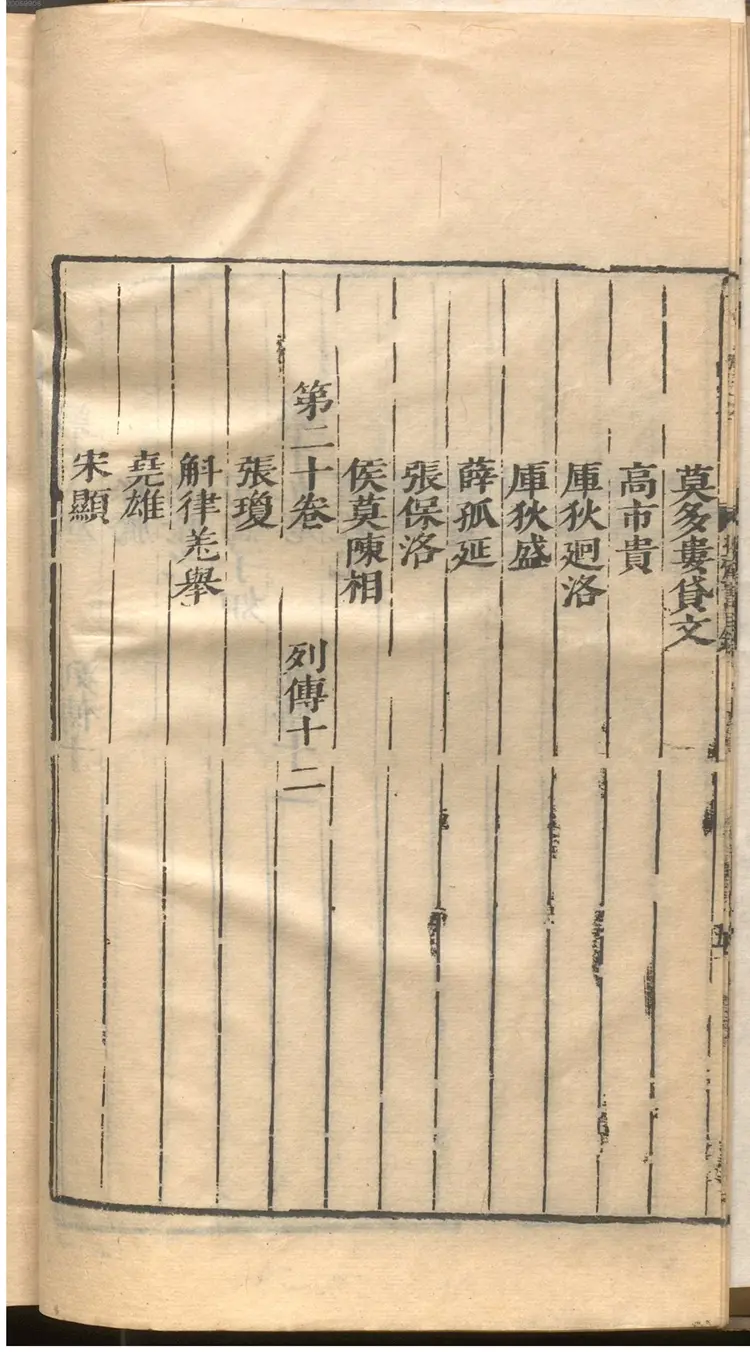 莫多婁貸文
高市貴
厙狄廻洛
厙狄盛
薛孤延
張保洛
侯莫陳相
第二十卷 列傳十二
張瓊
斛律羌舉
堯雄
宋顯